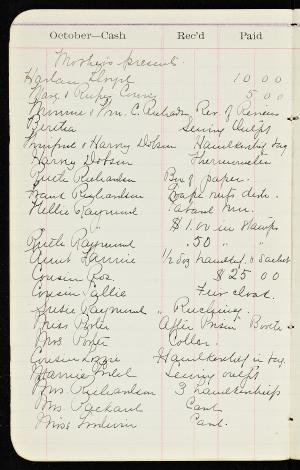 October—Cash Rec'd Paid
Mother's presents.
Harlan Lloyd 10 00
5 00
Minnie & Wm. C. Richardson Rev. of Reviews
Bertha Sewing Outfit
Winifred & Harry Dobson Handkerchief bag
Harry Dobson Thermometer
Ruth Richardson Box of paper.
Frank Richardson
Raymund
$1.00 in stamps
Ruth Raymund .50 " "
Aunt Fannie 1/2 doz handkf. & Sachet
Cousin Ros. $25 00
Cousin Callie Fur cloak.
Susie Raymund Ruching.
Miss Porter Booth
Mrs Porter Collar.
Cousin Lizzie Handkerchief in bag.
Sewing outfit
Mrs. Richardson 3 handkerchiefs
Mrs. Packard Card
Miss Card.